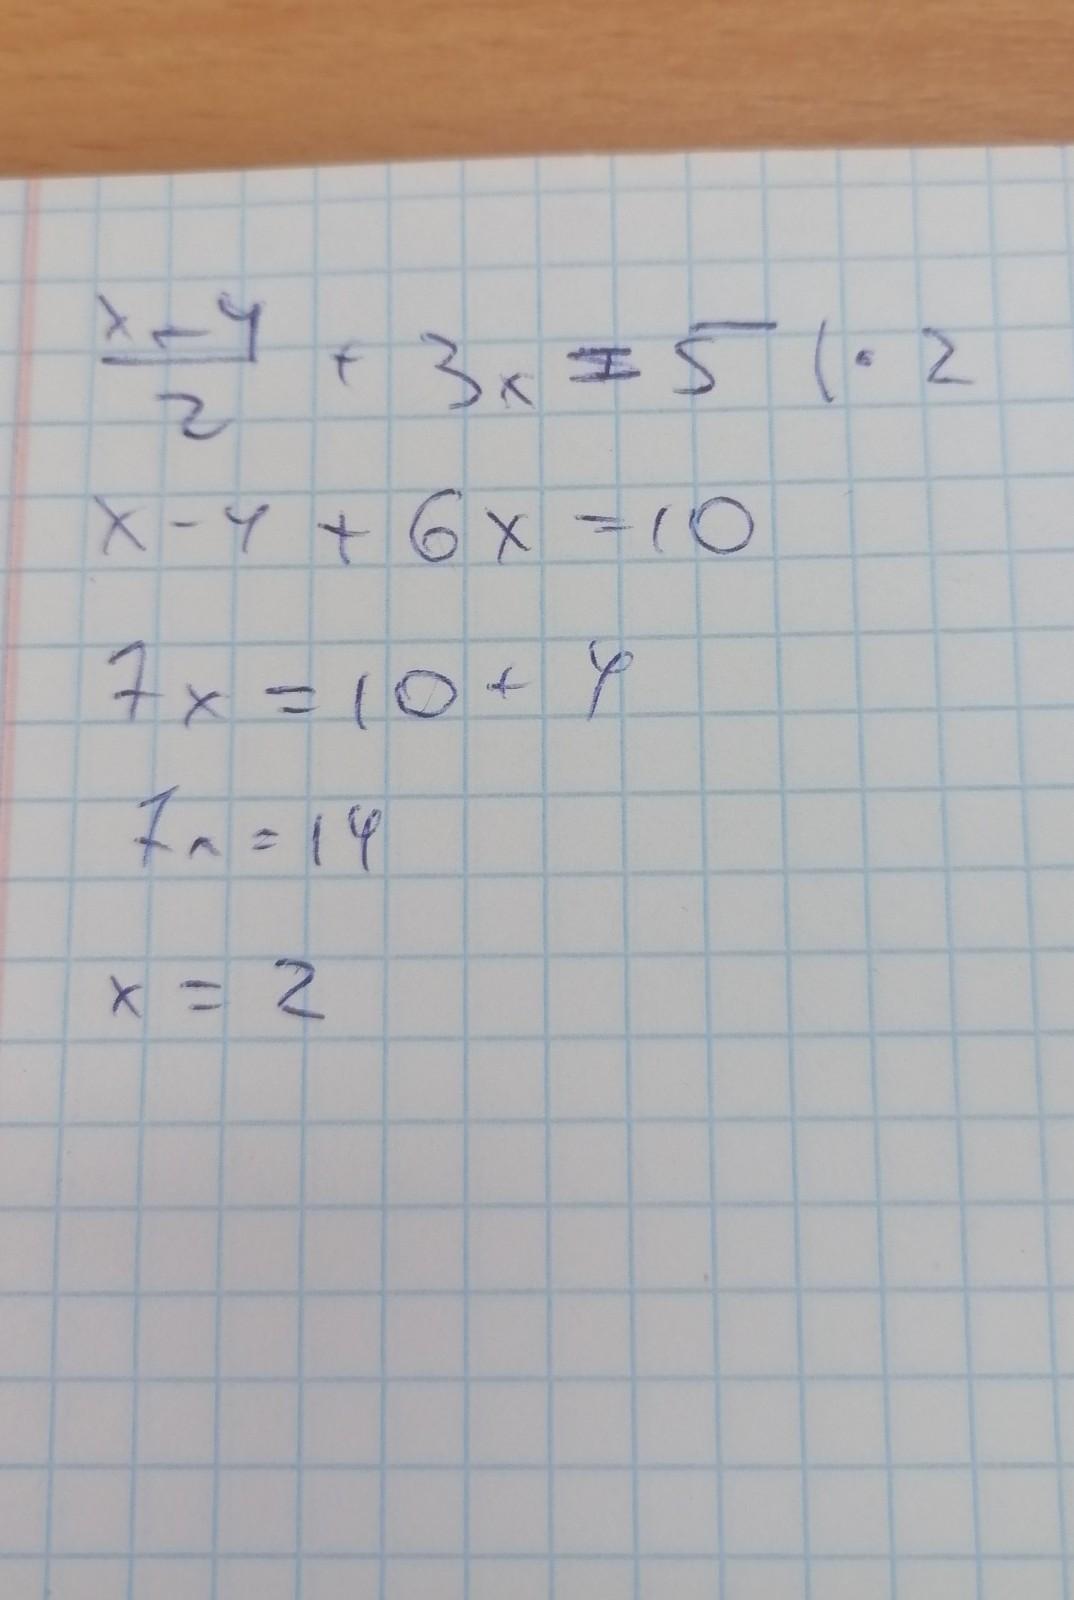 x-4/2 + 3x = 5 | · 2
x - 4 + 6x = 10
7x = 10 + 4
7x = 14
x = 2